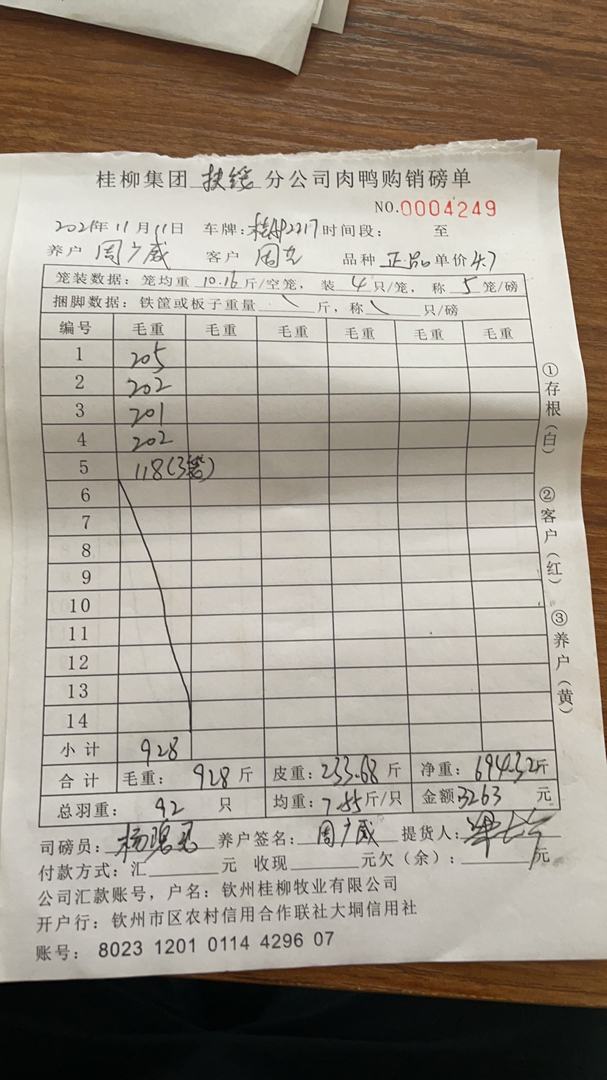 桂柳集团 扶绥 分公司肉鸭购销磅单
NO.0004249
2021年11月11日 车牌: 2217 时间段: 至
养户 周广威 客户 周 品种 正品 单价 4.7
笼装数据: 笼均重 10.16 斤/空笼, 装 4 只/笼, 称 5 笼/磅
捆脚数据: 铁筐或板子重量 \ 斤, 称 \ 只/磅
编号 毛重 毛重 毛重 毛重 毛重 毛重
1 205
2 202
3 201
4 202
5 118(3笼)
6
7
8
9
10
11
12
13
14
小计 928
合计 毛重: 928 斤 皮重: 233.68 斤 净重: 694.32斤
总羽重: 92 只 均重: 7.55斤/只 金额: 3263 元
司磅员: 杨 养户签名: 周广威 提货人:
付款方式: 汇 元 收现 元欠(余): 元
公司汇款账号, 户名: 钦州桂柳牧业有限公司
开户行: 钦州市区农村信用合作联社大垌信用社
账号: 8023 1201 0114 4296 07
①存根(白)
②客户(红)
③养户(黄)